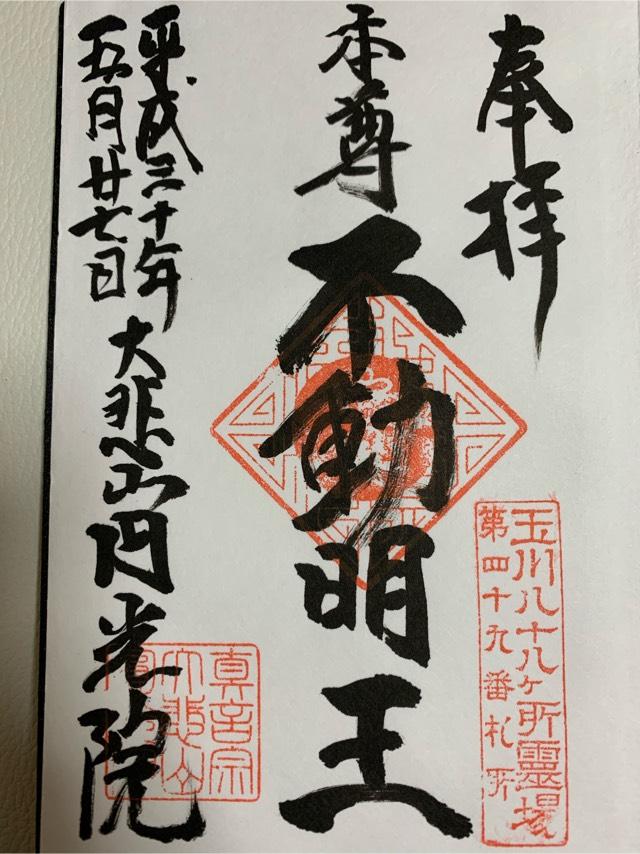 奉拝
玉川八十八ヶ所霊場
第四十九番札所
本尊
不動明王
平成三十年
五月廿七日
大悲山円光院
真言宗
大悲山